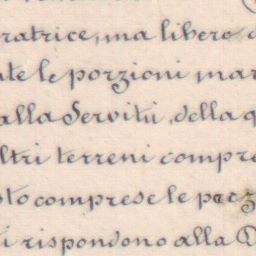 ratrice, ma libero
le porzioni
alla Servitù, della
ltri terreni compre
to comprese le
rispondono alla